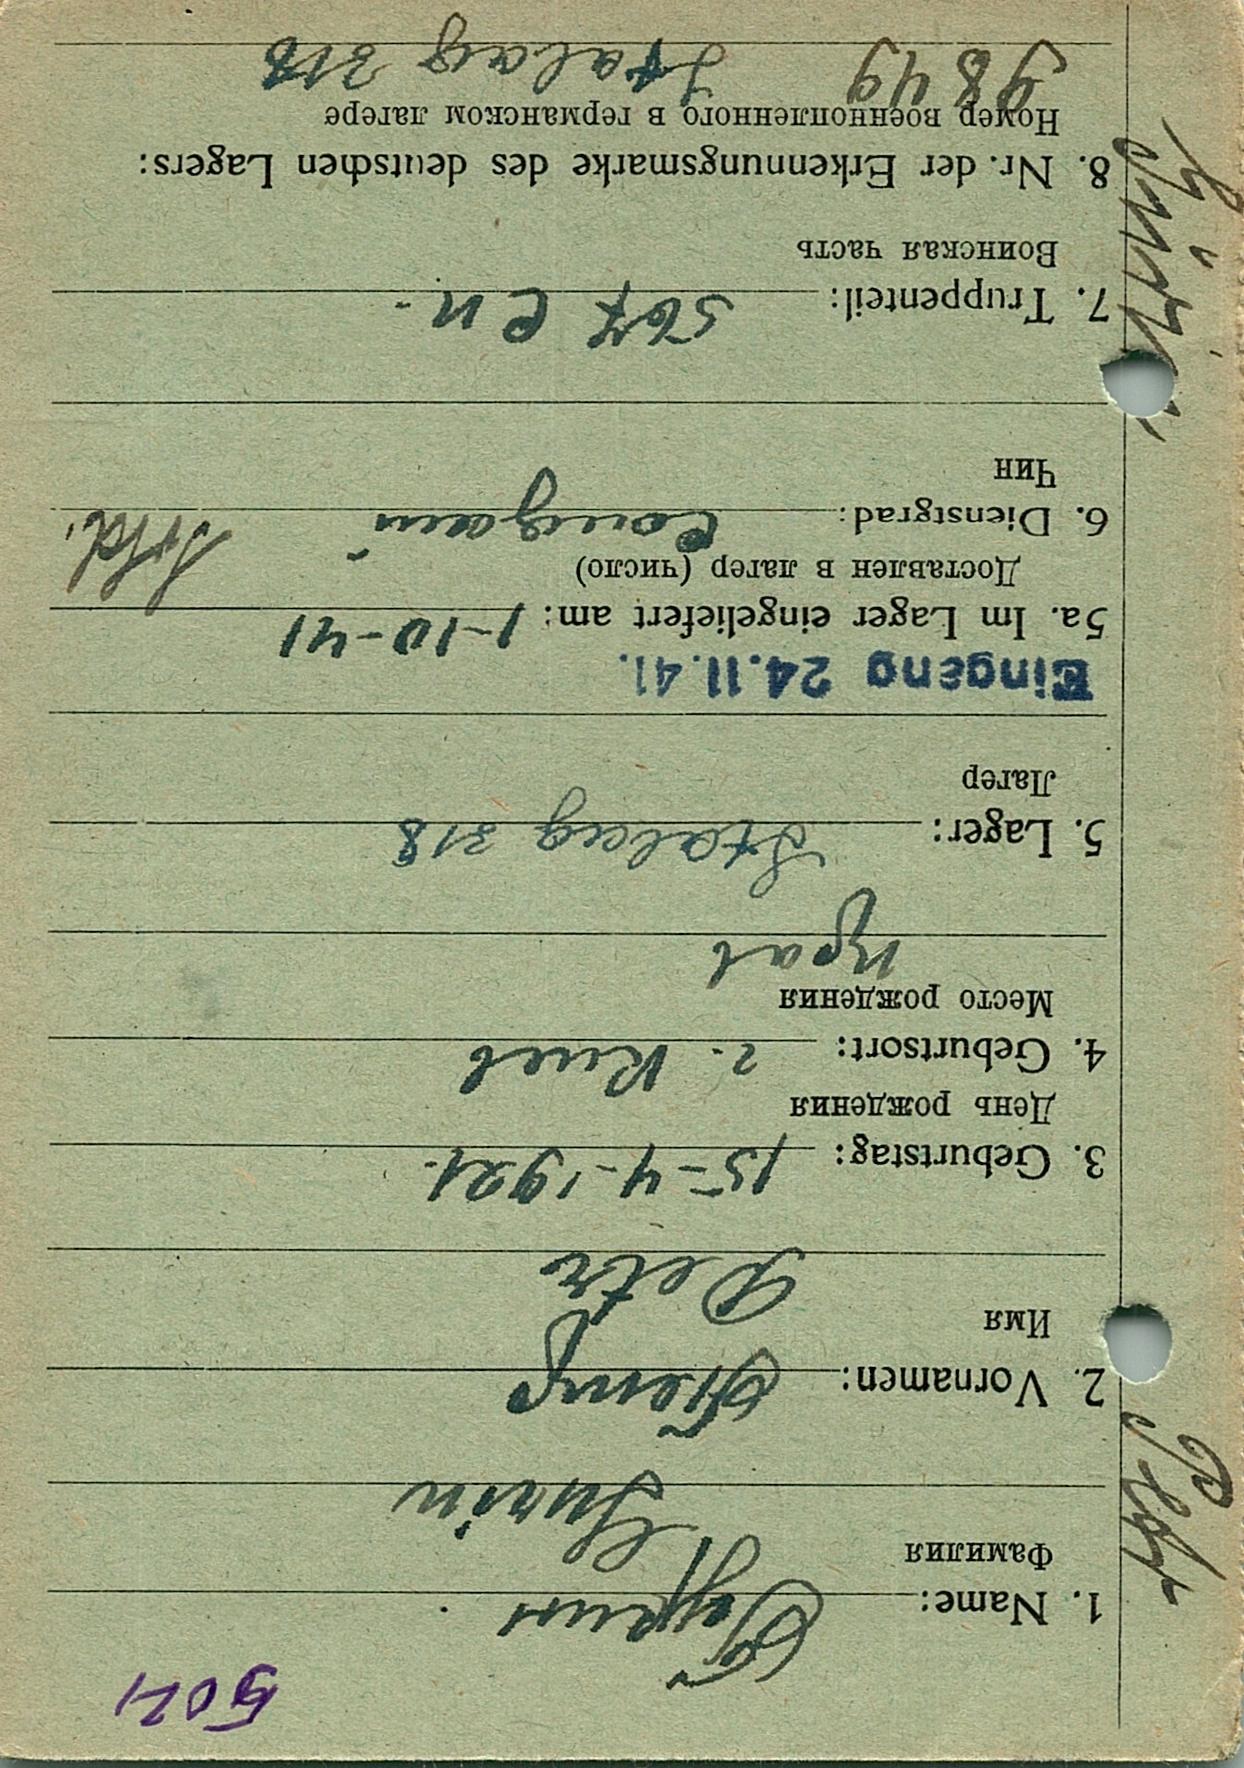 504
1. Name: Гурин
Фамилия
Gurin
2. Vornamen: Петр
Имя
Petr
3. Geburtstag: 15-4-1921.
День рождения
4. Geburtsort: г.
Место рождения
Урал
5. Lager: Stalag 318
Лагер
Eingang 24.11.41.
5a. Im Lager eingeliefert am: 1-10-41
Доставлен в лагер (число)
6. Dienstgrad: Sold.
Чин
7. Truppenteil: 567 сп.
Воинская часть
8. Nr. der Erkennungsmarke des deutschen Lagers:
Номер военнопленного в германском лагере
9849 Stalag 318
Petr